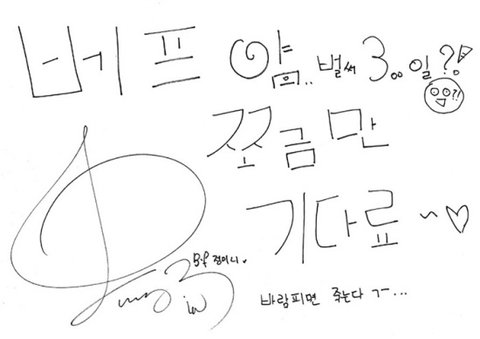 버프 얌 의.. 벌써 300일?!
?!
쪼금만
기다료 ~♡
B.f 점이니.
바람피면 죽는다 ㄱ-...